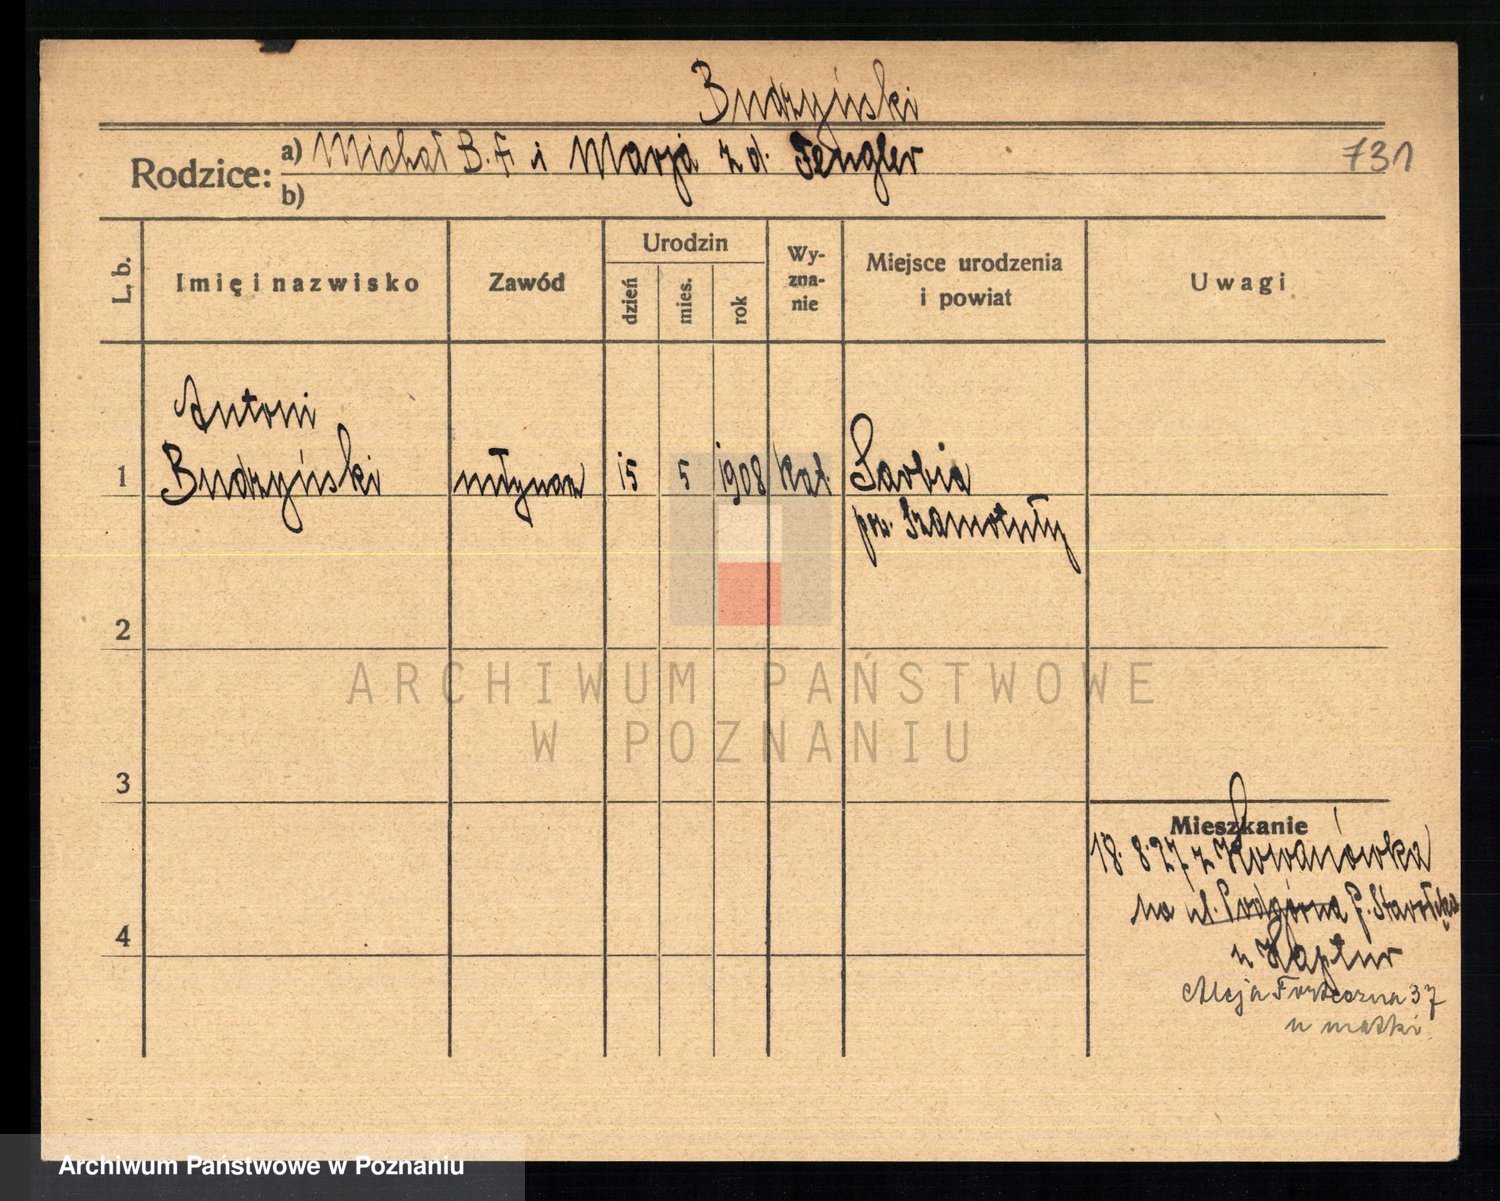 Budzyński
Rodzice: a) Michał B. F. i Marja z d. Fengler
731
b)
L. b.
Imię i nazwisko
Zawód
Urodzin
dzień
mies.
rok
Wy-
zna-
nie
Miejsce urodzenia
i powiat
Uwagi
Antoni
1 Budzyński młynarz 15 5 1908 kat. Sarbia
pow. Szamotuły
2
ARCHIWUM PAŃSTWOWE
W POZNANIU
3
Mieszkanie
18. 8. 27. z Kowanówka
na ul. Podgórna P. Starołęka
u Kaptur
Aleja Forteczna 37
u matki
4
Archiwum Państwowe w Poznaniu